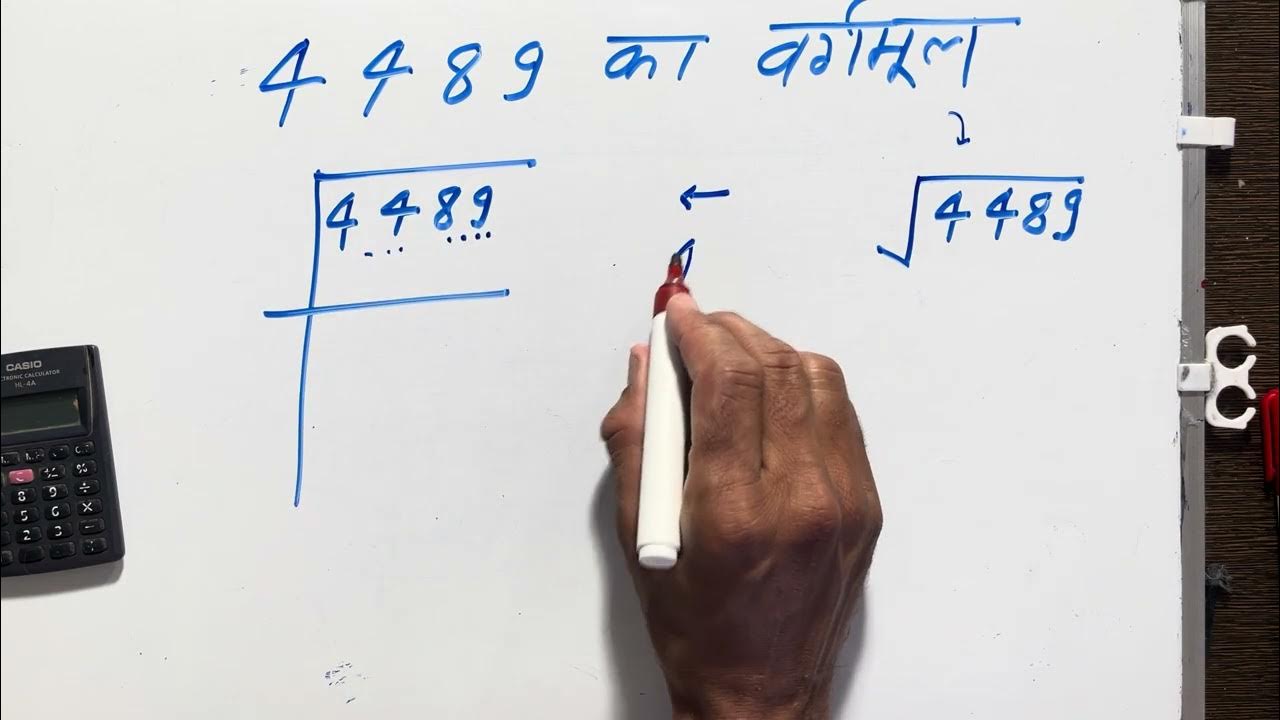 4 4 8 9 का वर्गमूल
4 4 8 9
←
√4489
CASIO
ELECTRONIC CALCULATOR
HL-4A
C % 
8 9 ÷
5 6 ×
2 3 −